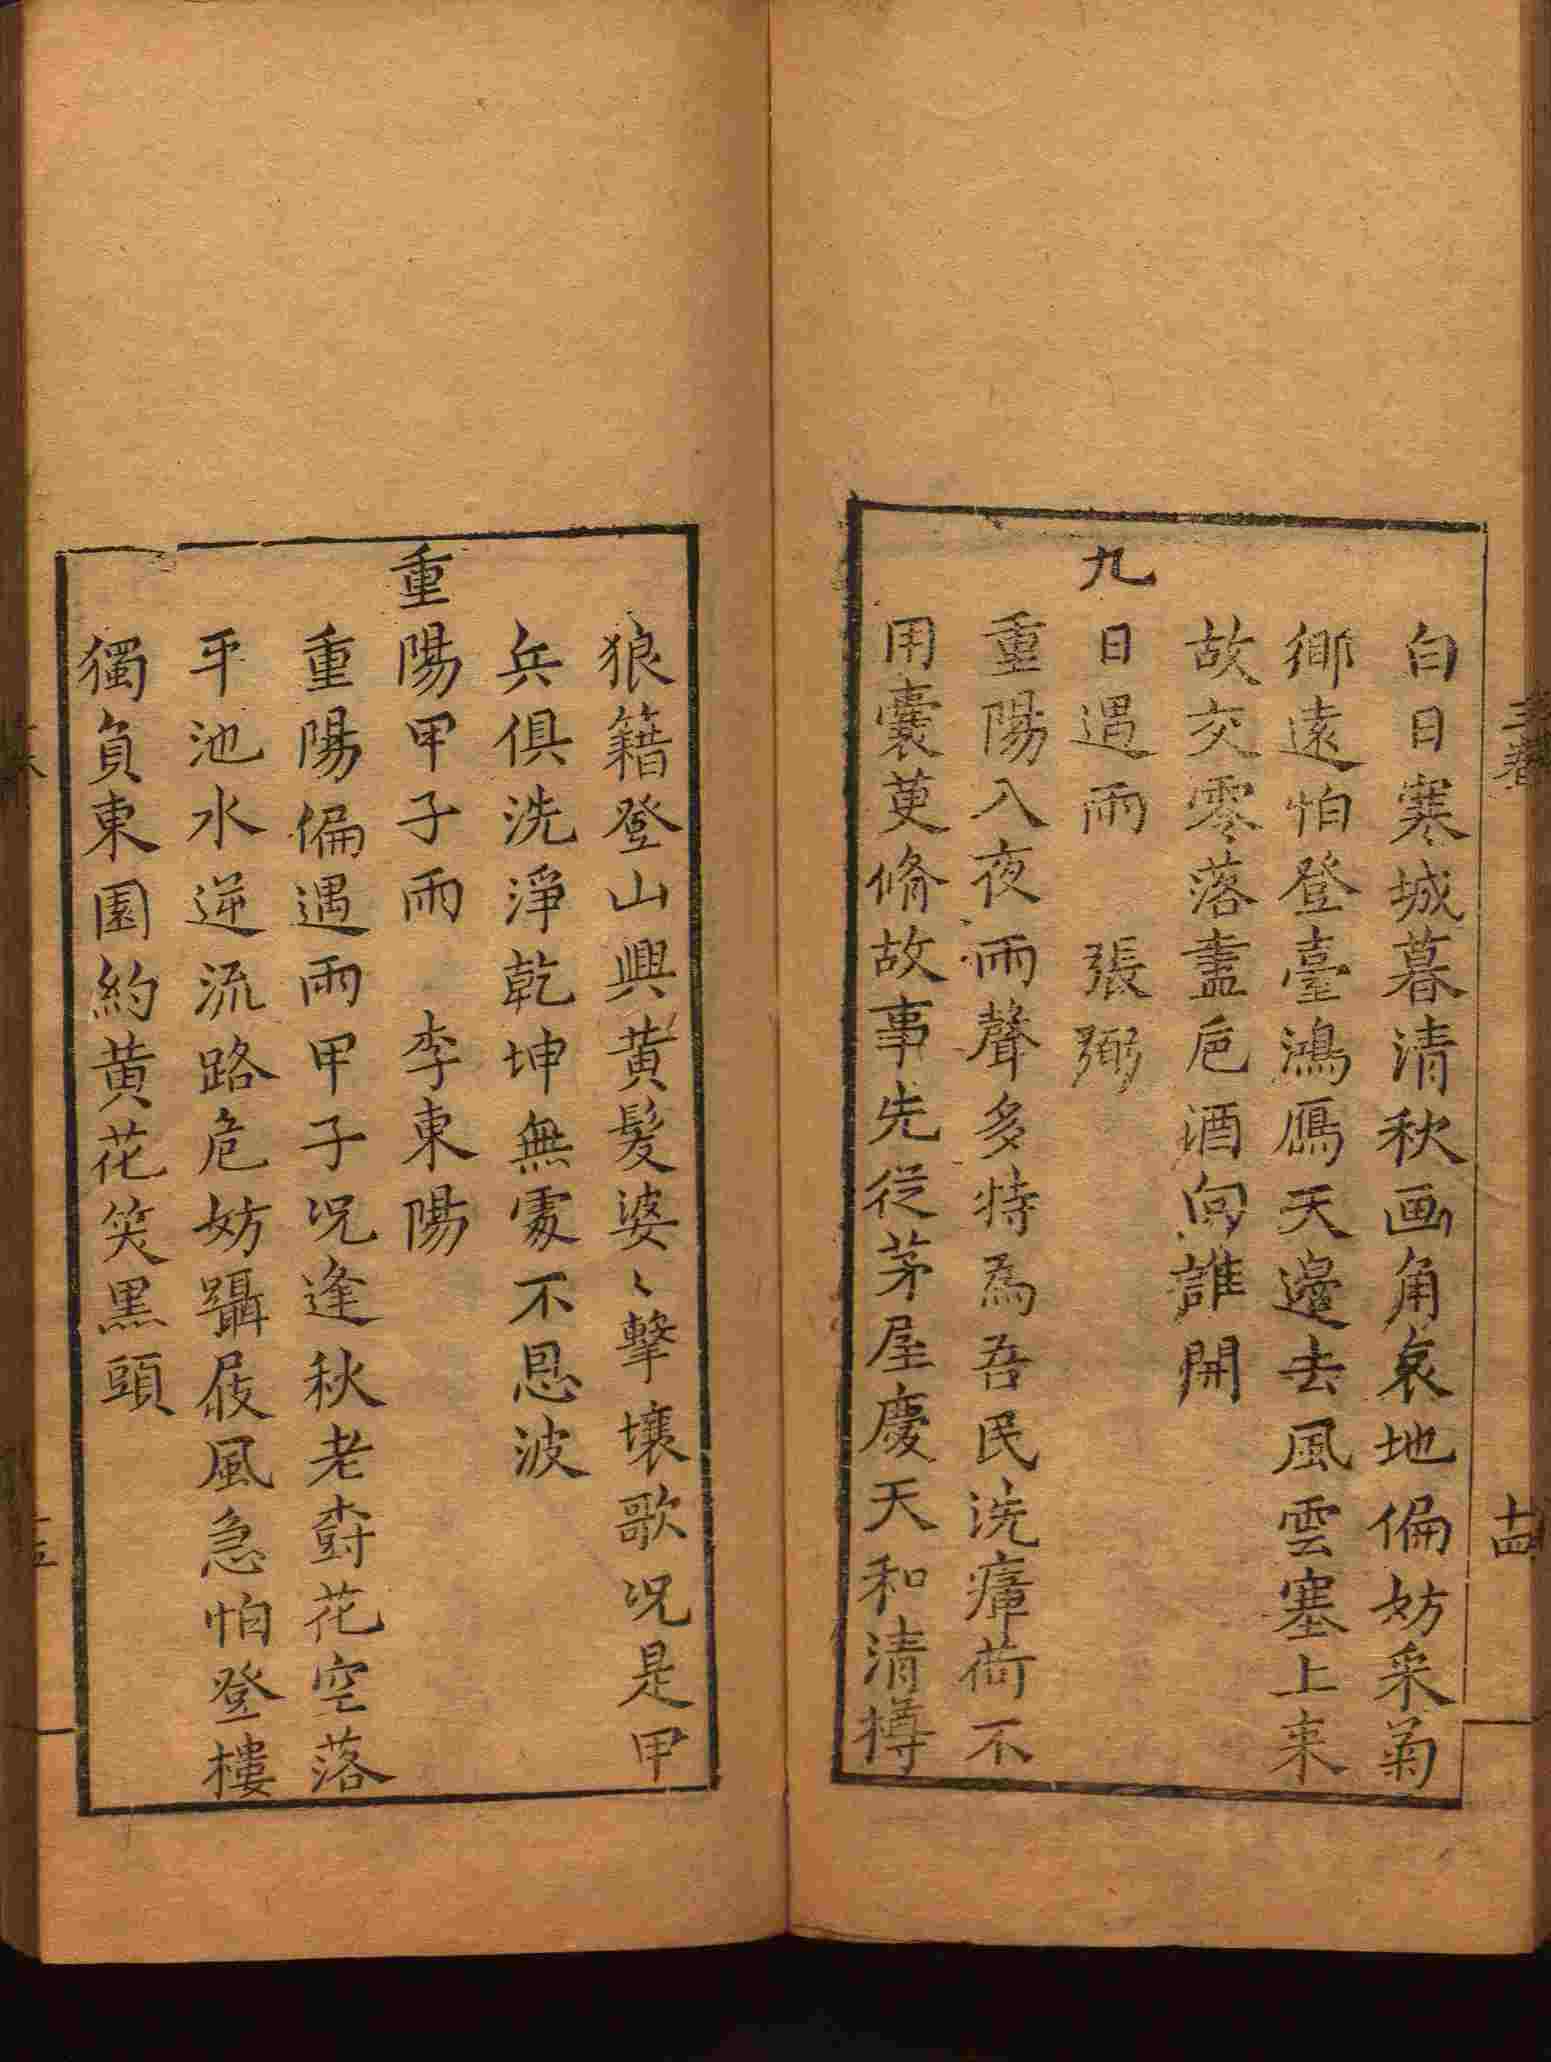 白日寒城暮清秋画角哀地偏妨采菊
鄉遠怕登臺鴻鴈天邊去風雲塞上来
故交零落盡巵酒向誰開
九日遇雨　張弼
重陽入夜雨聲多特為吾民洗瘴荷不
用囊萸脩故事先從茅屋慶天和清樽
狼籍登山興黄髪婆〻擊壤歌况是甲
兵俱洗淨乾坤無處不恩波
重陽甲子雨　李東陽
重陽偏遇雨甲子况逢秋老樹花空落
平池水逆流路危妨躡屐風急怕登樓
獨負東園約黄花笑黒頭
三卷
十四